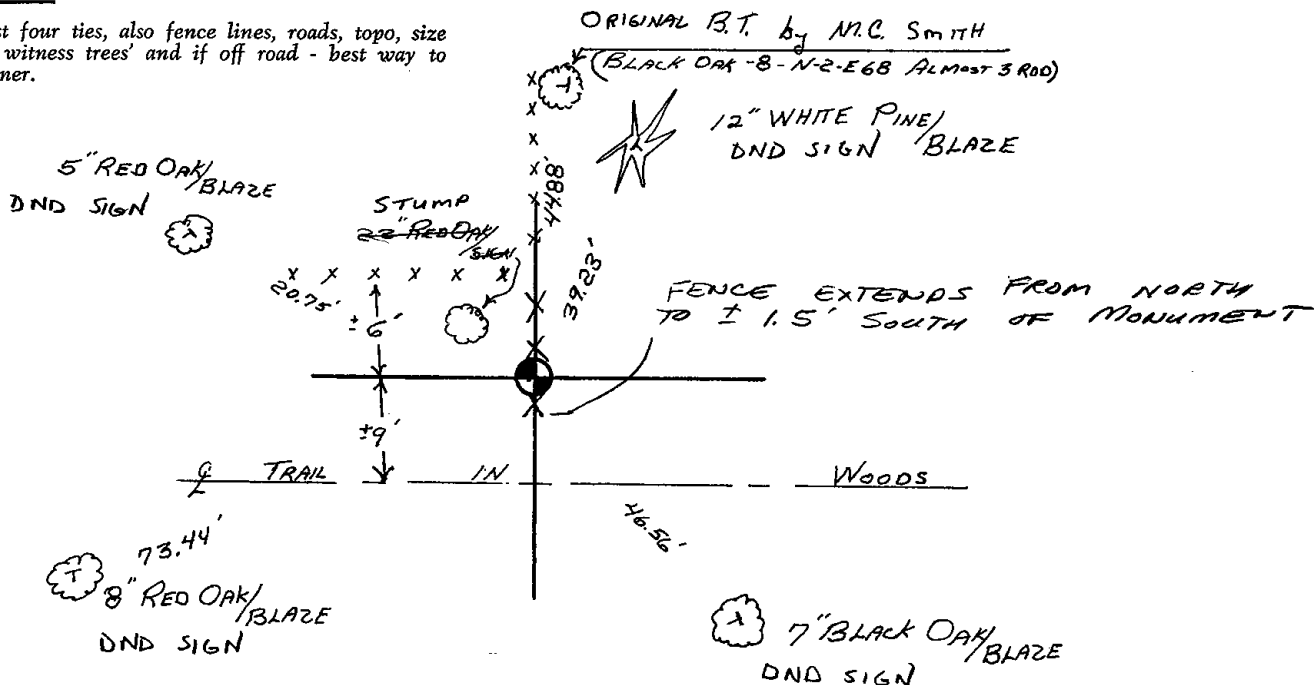 st four ties, also fence lines, roads, topo, size
witness trees' and if off road - best way to
ner.
ORIGINAL B.T. by M.C. SMITH
(BLACK OAK -8-N-2-E68 ALMOST 3 ROD)
12" WHITE PINE/BLAZE
DND SIGN
5" RED OAK/BLAZE
DND SIGN
STUMP
22" RED OAK/SIGN
44.88'
20.75'
±6'
39.23'
FENCE EXTENDS FROM NORTH
TO ± 1.5' SOUTH OF MONUMENT
±9'
℄ TRAIL IN WOODS
73.44'
46.56'
8" RED OAK/BLAZE
DND SIGN
7" BLACK OAK/BLAZE
DND SIGN